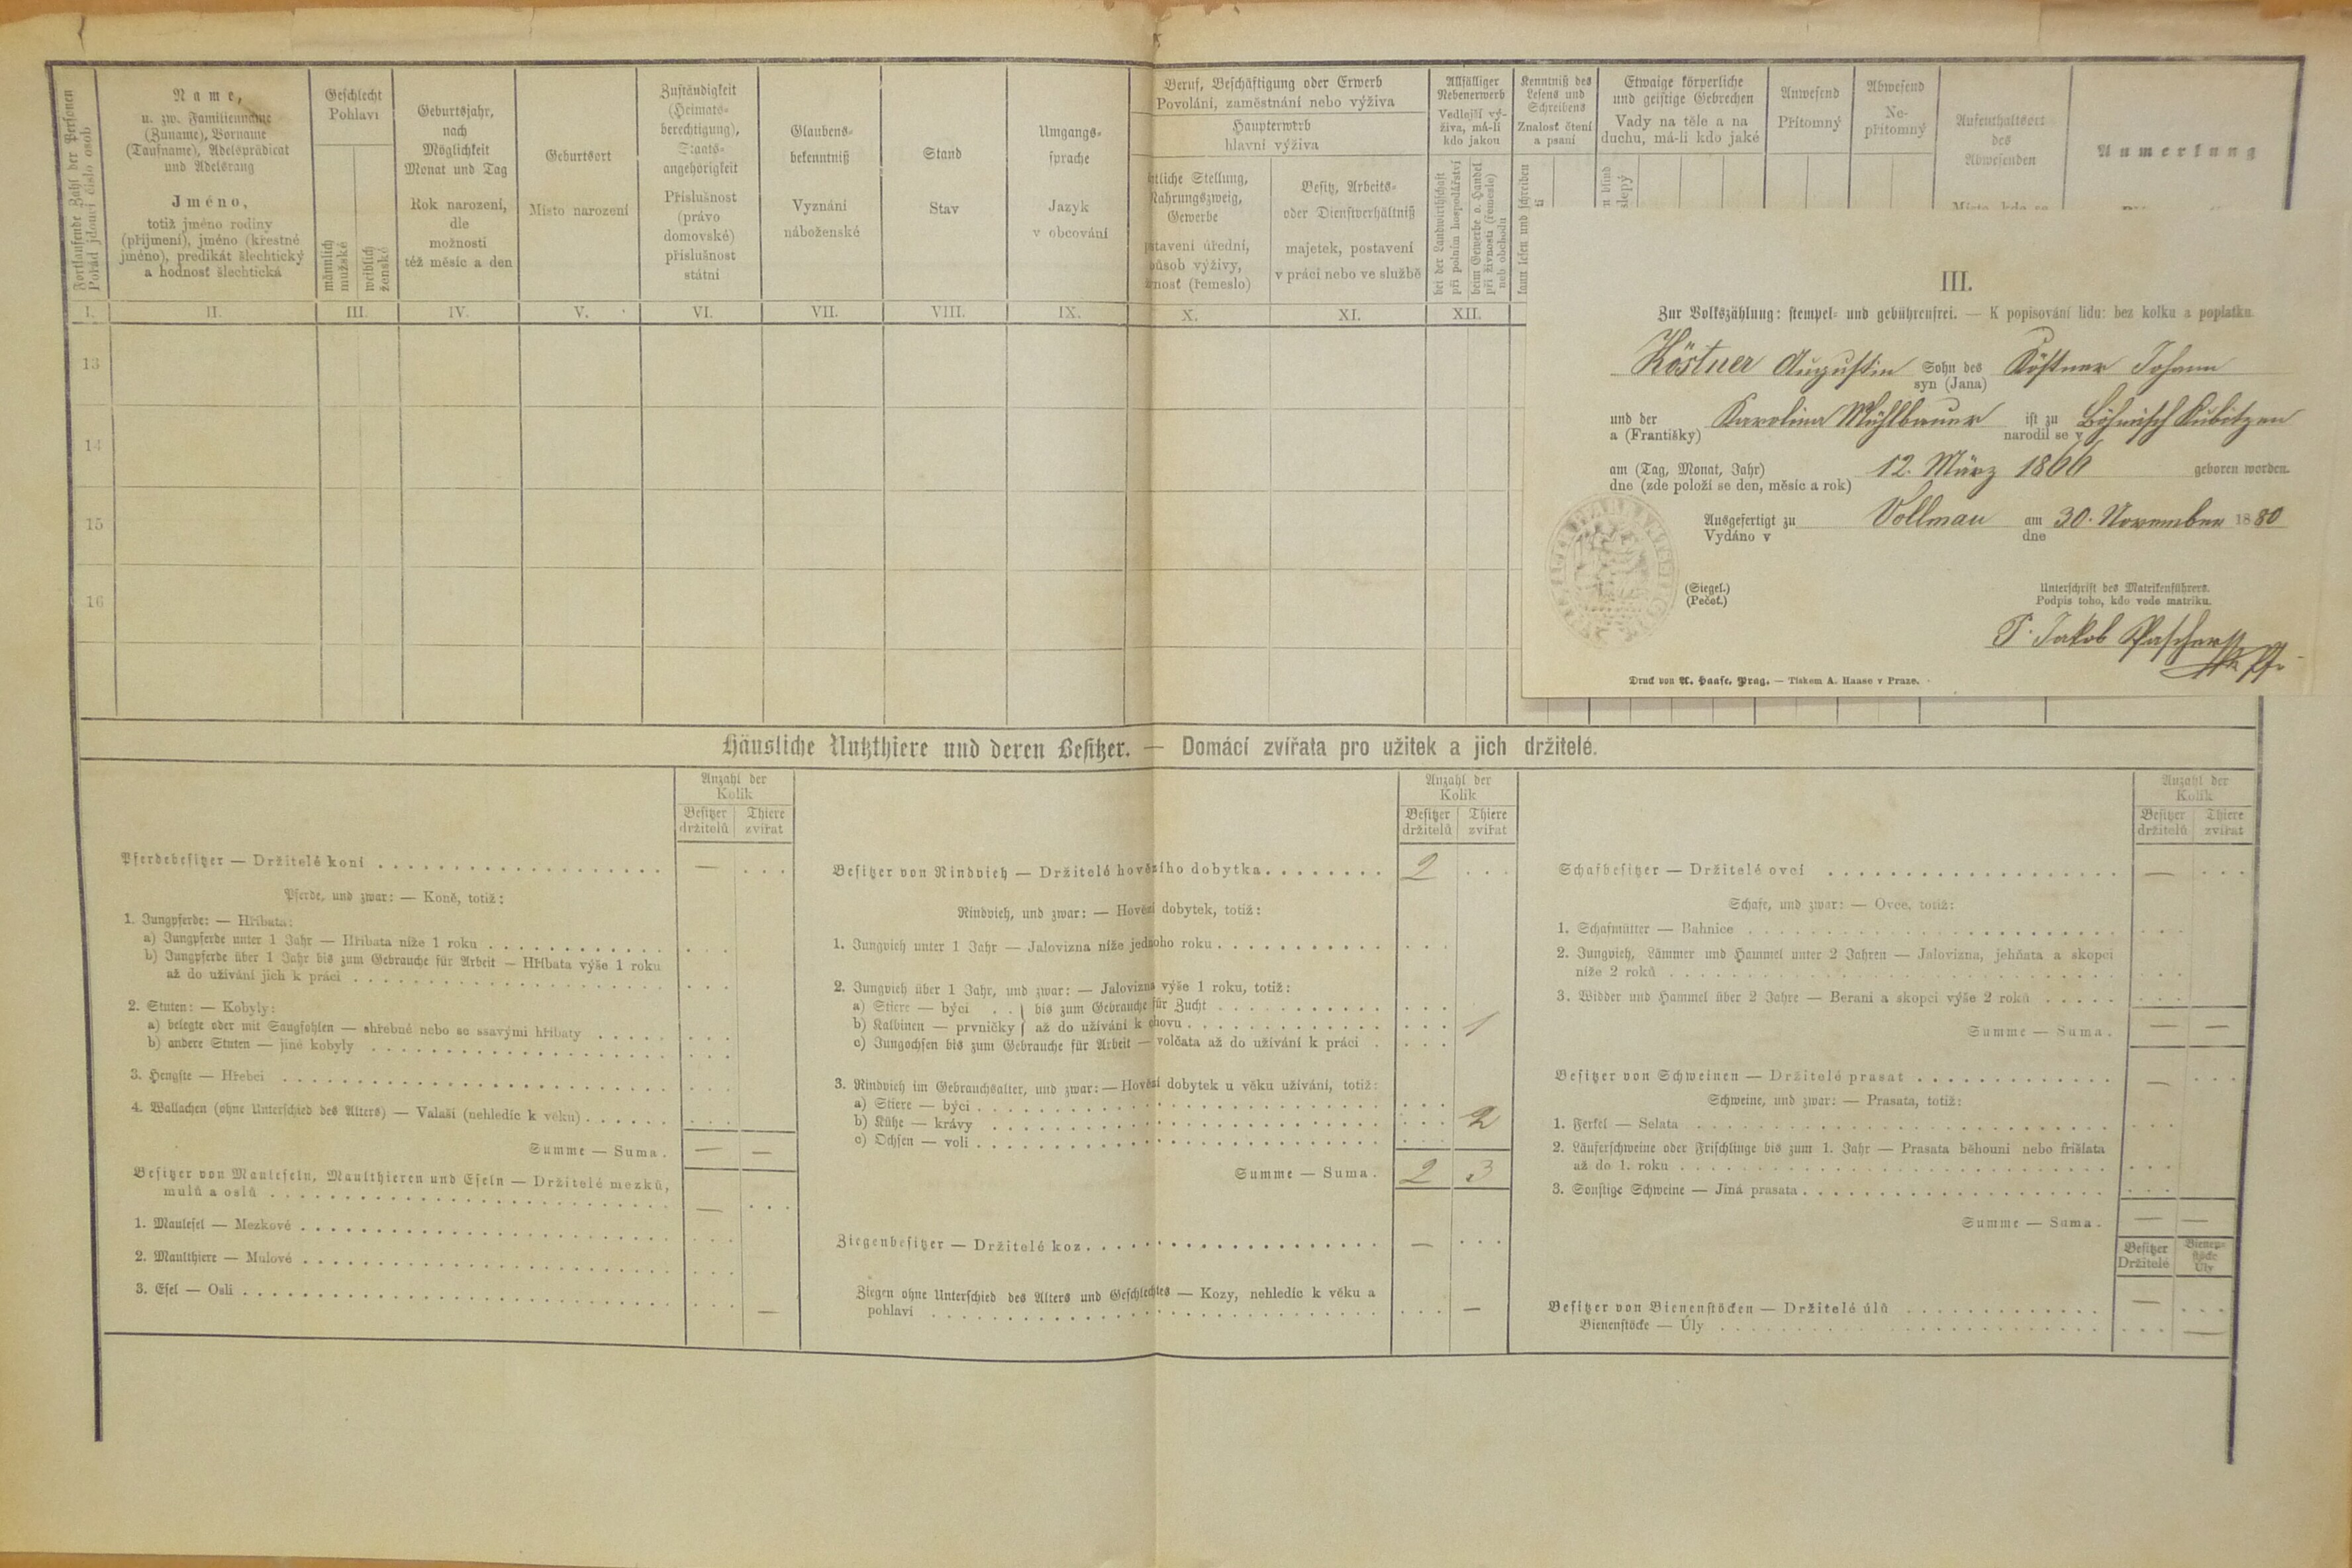 Fortlaufende Zahl der Personen
Pořád jdoucí číslo osob
Name,
u. zw. Familienname
(Zuname), Vorname
(Taufname), Adelsprädicat
und Adelsrang
Jméno,
totiž jméno rodiny
(příjmení), jméno (křestné
jméno), predikát šlechtický
a hodnosť šlechtická
Geschlecht
Pohlaví
männlich
mužské
weiblich
ženské
Geburtsjahr,
nach
Möglichkeit
Monat und Tag
Rok narození,
dle
možnosti
též měsíc a den
Geburtsort
Místo narození
Zuständigkeit
(Heimats-
berechtigung),
Staats-
angehörigkeit
Příslušnost
(právo
domovské)
příslušnost
státní
Glaubens-
bekenntniß
Vyznání
náboženské
Stand
Stav
Umgangs-
sprache
Jazyk
v obcování
Beruf, Beschäftigung oder Erwerb
Povolání, zaměstnání nebo výživa
Haupterwerb
hlavní výživa
tliche Stellung,
Nahrungszweig,
Gewerbe
stavení úřední,
působ výživy,
nosť (řemeslo)
Besitz, Arbeits-
oder Dienstverhältniß
majetek, postavení
v práci nebo ve službě
Allfälliger
Nebenerwerb
Vedlejší vý-
živa, má-li
kdo jakou
bei der Landwirthschaft
při polním hospodářství
beim Gewerbe o. Handel
při živnosti (řemesle)
neb obchodu
Kenntniß des
Lesens und
Schreibens
Znalosť čtení
a psaní
kann lesen und schreiben
Etwaige körperliche
und geistige Gebrechen
Vady na těle a na
duchu, má-li kdo jaké
blind
slepý
Anwesend
Přítomný
Abwesend
Ne-
přítomný
Aufenthaltsort
des
Abwesenden
Anmerkung
I. II. III. IV. V. VI. VII. VIII. IX. X. XI. XII.
13
14
15
16
III.
Zur Volkszählung: stempel- und gebührenfrei. — K popisování lidu: bez kolku a poplatku.
Köstner Augustin Sohn des Köstner Johann
syn (Jana)
und der Karolina Mühlbauer ist zu Böhmisch Kubitzen
a (Františky) narodil se v
am (Tag, Monat, Jahr) 12. März 1866 geboren worden.
dne (zde položí se den, měsíc a rok)
Ausgefertigt zu Vollmau am 30. November 1880
Vydáno v dne
(Siegel.)
(Pečeť.)
Unterschrift des Matrikenführers.
Podpis toho, kdo vede matriku.
P. Jakob
Druck von A. Haase, Prag. — Tiskem A. Haase v Praze.
Häusliche Nutzthiere und deren Besitzer. — Domácí zvířata pro užitek a jich držitelé.
Anzahl der
Kolik
Besitzer Thiere
držitelů zvířat
Pferdebesitzer — Držitelé koní —
Pferde, und zwar: — Koně, totiž:
1. Jungpferde: — Hříbata:
a) Jungpferde unter 1 Jahr — Hříbata níže 1 roku
b) Jungpferde über 1 Jahr bis zum Gebrauche für Arbeit — Hříbata výše 1 roku
až do užívání jich k práci
2. Stuten: — Kobyly:
a) belegte oder mit Saugfohlen — shřebné nebo se ssavými hříbaty
b) andere Stuten — jiné kobyly
3. Hengste — Hřebci
4. Wallachen (ohne Unterschied des Alters) — Valaši (nehledíc k věku)
Summe — Suma. — —
Besitzer von Mauleseln, Maulthieren und Eseln — Držitelé mezků,
mulů a oslů —
1. Maulesel — Mezkové
2. Maulthiere — Mulové
3. Esel — Osli —
Anzahl der
Kolik
Besitzer Thiere
držitelů zvířat
Besitzer von Rindvieh — Držitelé hovězího dobytka 2
Rindvieh, und zwar: — Hovězí dobytek, totiž:
1. Jungvieh unter 1 Jahr — Jalovizna níže jednoho roku
2. Jungvieh über 1 Jahr, und zwar: — Jalovizna výše 1 roku, totiž:
a) Stiere — býci . . } bis zum Gebrauche für Zucht
b) Kalbinen — prvničky } až do užívání k chovu 1
c) Jungochsen bis zum Gebrauche für Arbeit — volčata až do užívání k práci
3. Rindvieh im Gebrauchsalter, und zwar: — Hovězí dobytek u věku užívání, totiž:
a) Stiere — býci
b) Kühe — krávy 2
c) Ochsen — voli
Summe — Suma. 2 3
Ziegenbesitzer — Držitelé koz —
Ziegen ohne Unterschied des Alters und Geschlechtes — Kozy, nehledíc k věku a
pohlaví —
Anzahl der
Kolik
Besitzer Thiere
držitelů zvířat
Schafbesitzer — Držitelé ovcí —
Schafe, und zwar: — Ovce, totiž:
1. Schafmütter — Bahnice
2. Jungvieh, Lämmer und Hammel unter 2 Jahren — Jalovizna, jehňata a skopci
níže 2 roků
3. Widder und Hammel über 2 Jahre — Berani a skopci výše 2 roků
Summe — Suma. — —
Besitzer von Schweinen — Držitelé prasat —
Schweine, und zwar: — Prasata, totiž:
1. Ferkel — Selata
2. Läuferschweine oder Frischlinge bis zum 1. Jahr — Prasata běhouni nebo frišlata
až do 1. roku
3. Sonstige Schweine — Jiná prasata
Summe — Suma. — —
Besitzer Bienen-
stöcke
Držitelé Úly
Besitzer von Bienenstöcken — Držitelé úlů —
Bienenstöcke — Úly —